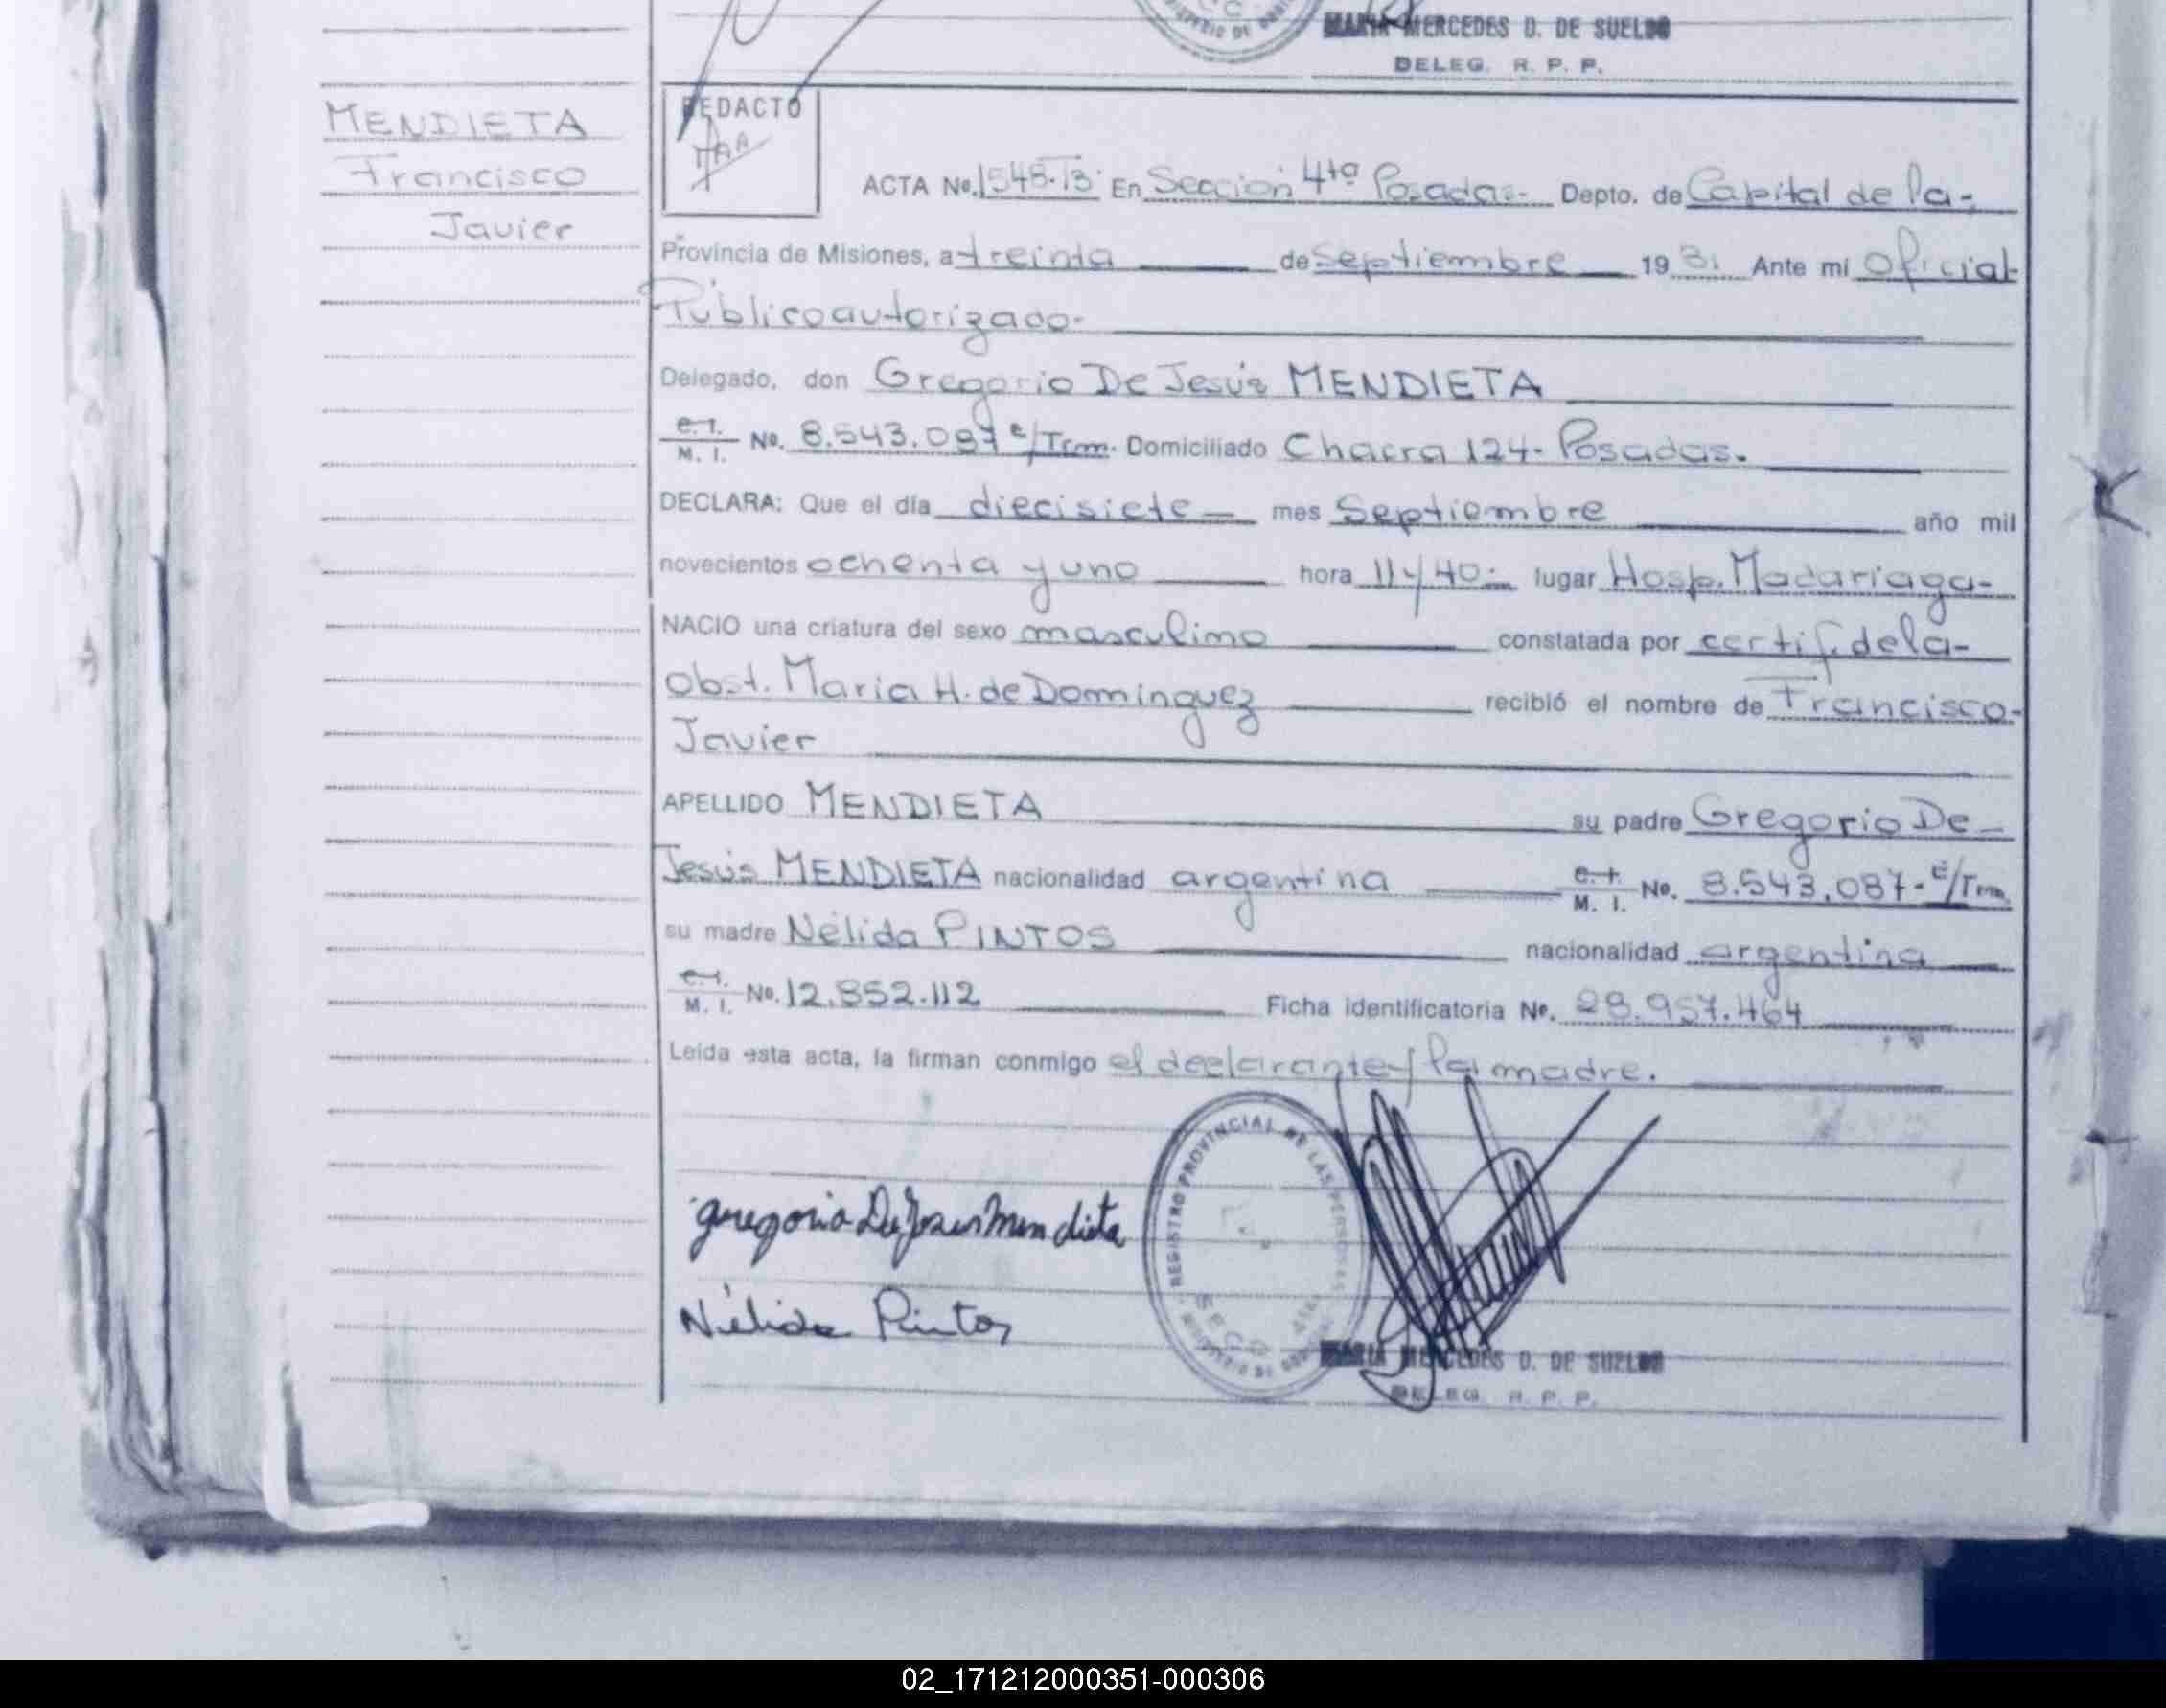 MARIA MERCEDES D. DE SUELDO
DELEG. R. P. P.
MENDIETA
Francisco
Javier
REDACTO
ACTA No. 1548-T3- En Sección 4ta Posadas- Depto. de Capital de la-
Provincia de Misiones, a treinta de Septiembre 1981 Ante mi Oficial
Público autorizado-
Delegado, don Gregorio De Jesús MENDIETA
C.I. M. I. No. 8.543.087 e/Trm. Domiciliado Chacra 124- Posadas.
DECLARA: Que el día diecisiete mes Septiembre año mil
novecientos ochenta y uno hora 11 y 40- lugar Hosp. Madariaga-
NACIO una criatura del sexo masculino constatada por certif. de la-
Obst. Maria H. de Dominguez recibió el nombre de Francisco-
Javier
APELLIDO MENDIETA su padre Gregorio De
Jesús MENDIETA nacionalidad argentina C.I. M. I. No. 8.543.087- E/Trm.
su madre Nélida PINTOS nacionalidad argentina
C.I. M. I. No. 12.852.112 Ficha identificatoria No. 28.957.464
Leída esta acta, la firman conmigo el declarante y la madre.
REGISTRO PROVINCIAL DE LAS PERSONAS
gregorio De Jesus Mendieta
Nélida Pintos
MARIA MERCEDES D. DE SUELDO
DELEG. R. P. P.
02_171212000351-000306